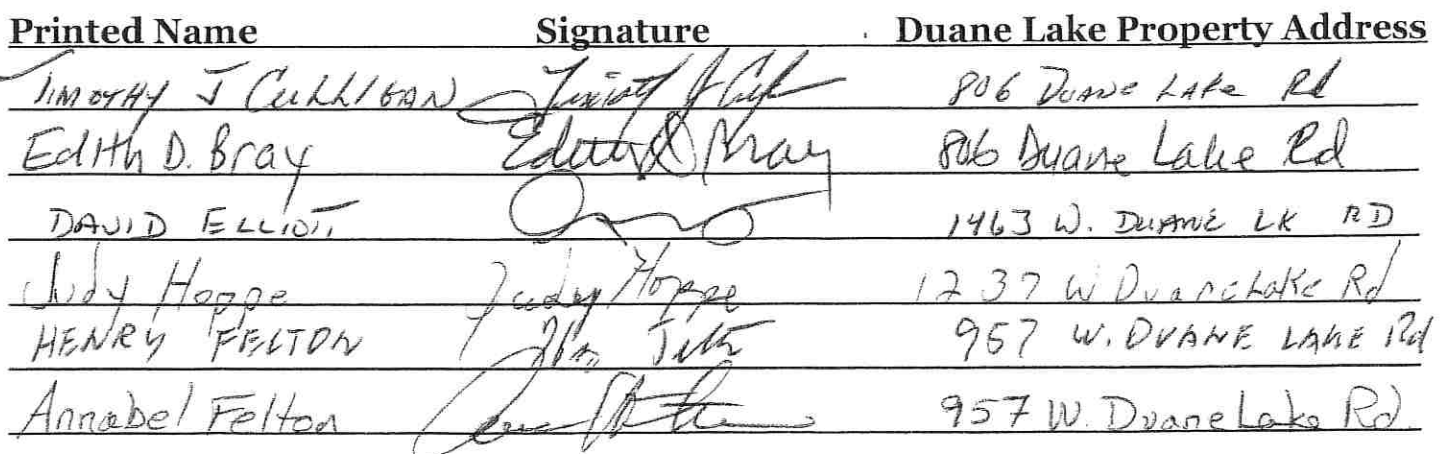 Printed Name Signature Duane Lake Property Address
TIMOTHY J CULLIGAN 806 DUANE LAKE Rd
Edith D. Bray Edith D Bray 806 Duane Lake Rd
DAVID ELLIOTT 1463 W. DUANE LK RD
Judy Hoppe Judy Hoppe 1237 W Duane Lake Rd
HENRY FELTON 957 W. DUANE LAKE Rd
Annabel Felton 957 W. Duane Lake Rd.